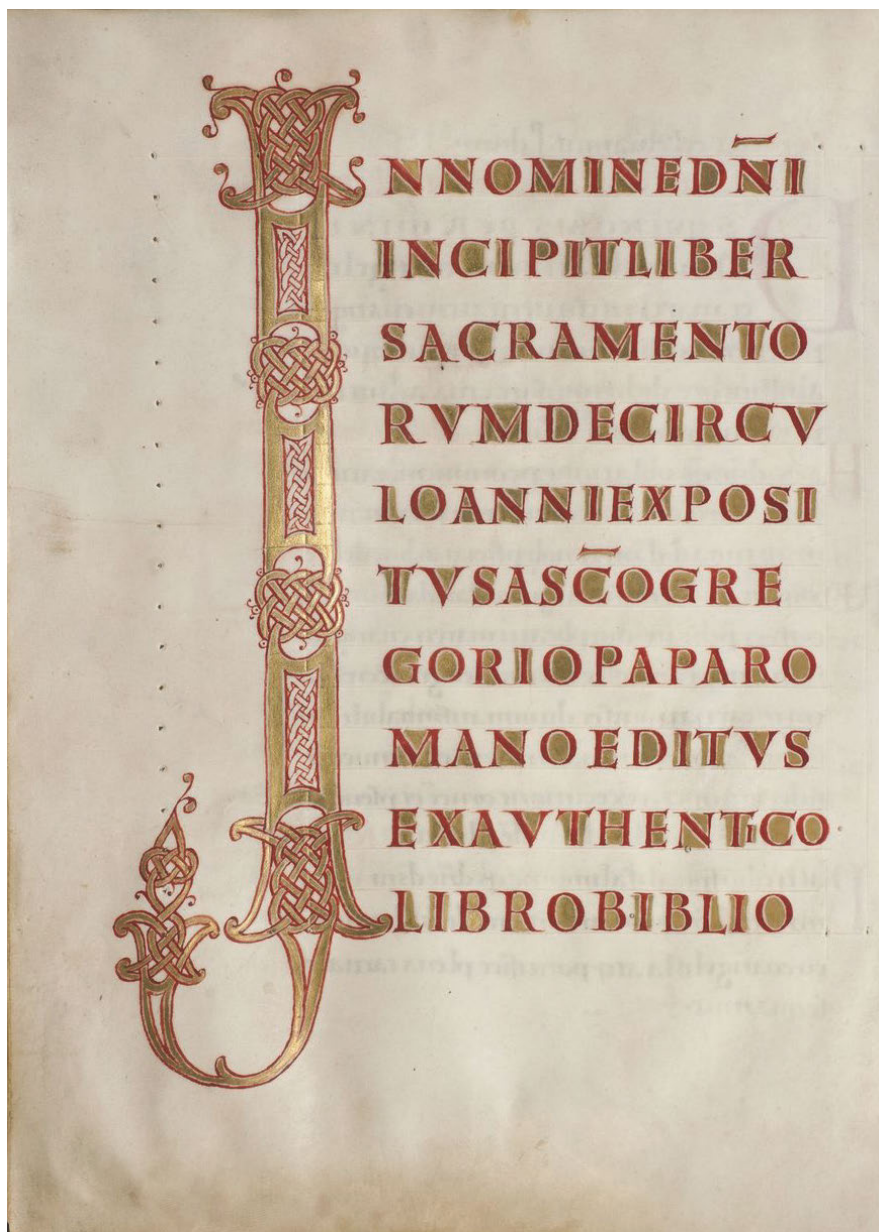 INNOMINEDN̄I
INCIPITLIBER
SACRAMENTO
RVMDECIRCV
LOANNIEXPOSI
TVSASC̄OGRE
GORIOPAPARO
MANOEDITVS
EXAVTHENTICO
LIBROBIBLIO